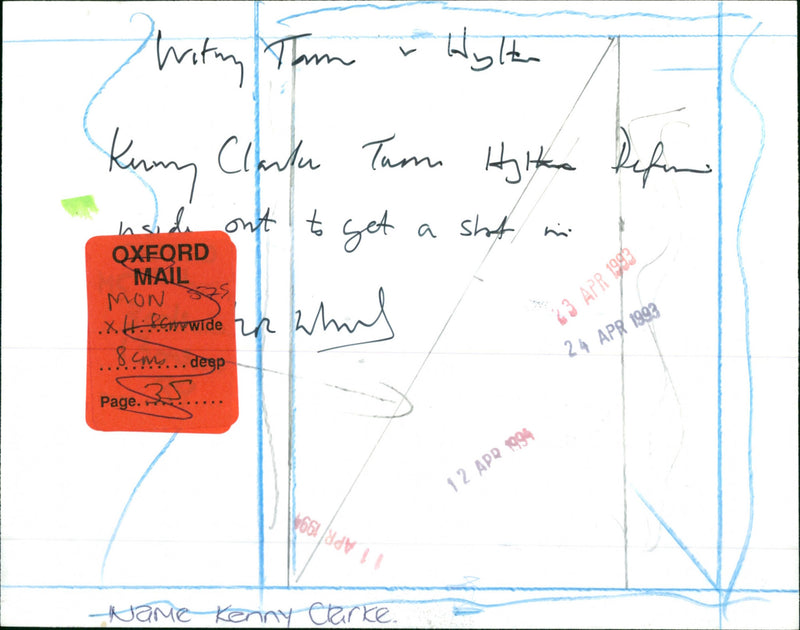 Witney Town v Hylton
Kenny Clarke Turns Hyltons Defence
inside out to get a shot in.
OXFORD
MAIL
MON
x 11.8cm wide
8 cms deep
Page. 35
23 APR 1993
24 APR 1993
12 APR 1994
11 APR 1994
Name Kenny Clarke.